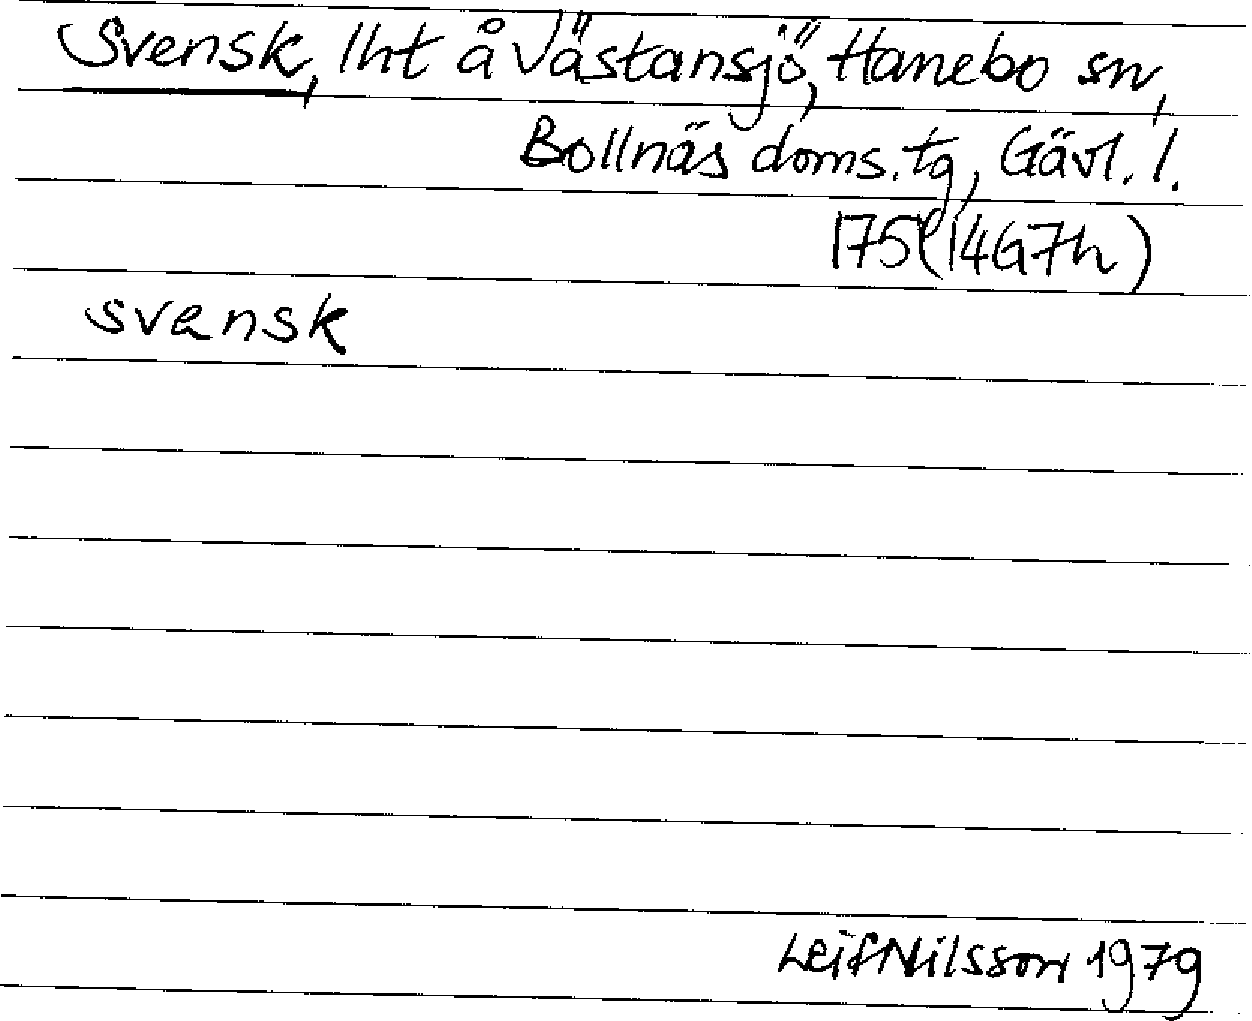 Svensk, lht å Västansjö, Hanebo sn,
Bollnäs doms.tg, Gävl. l.
175(14G7h)
svensk
Leif Nilsson 1979